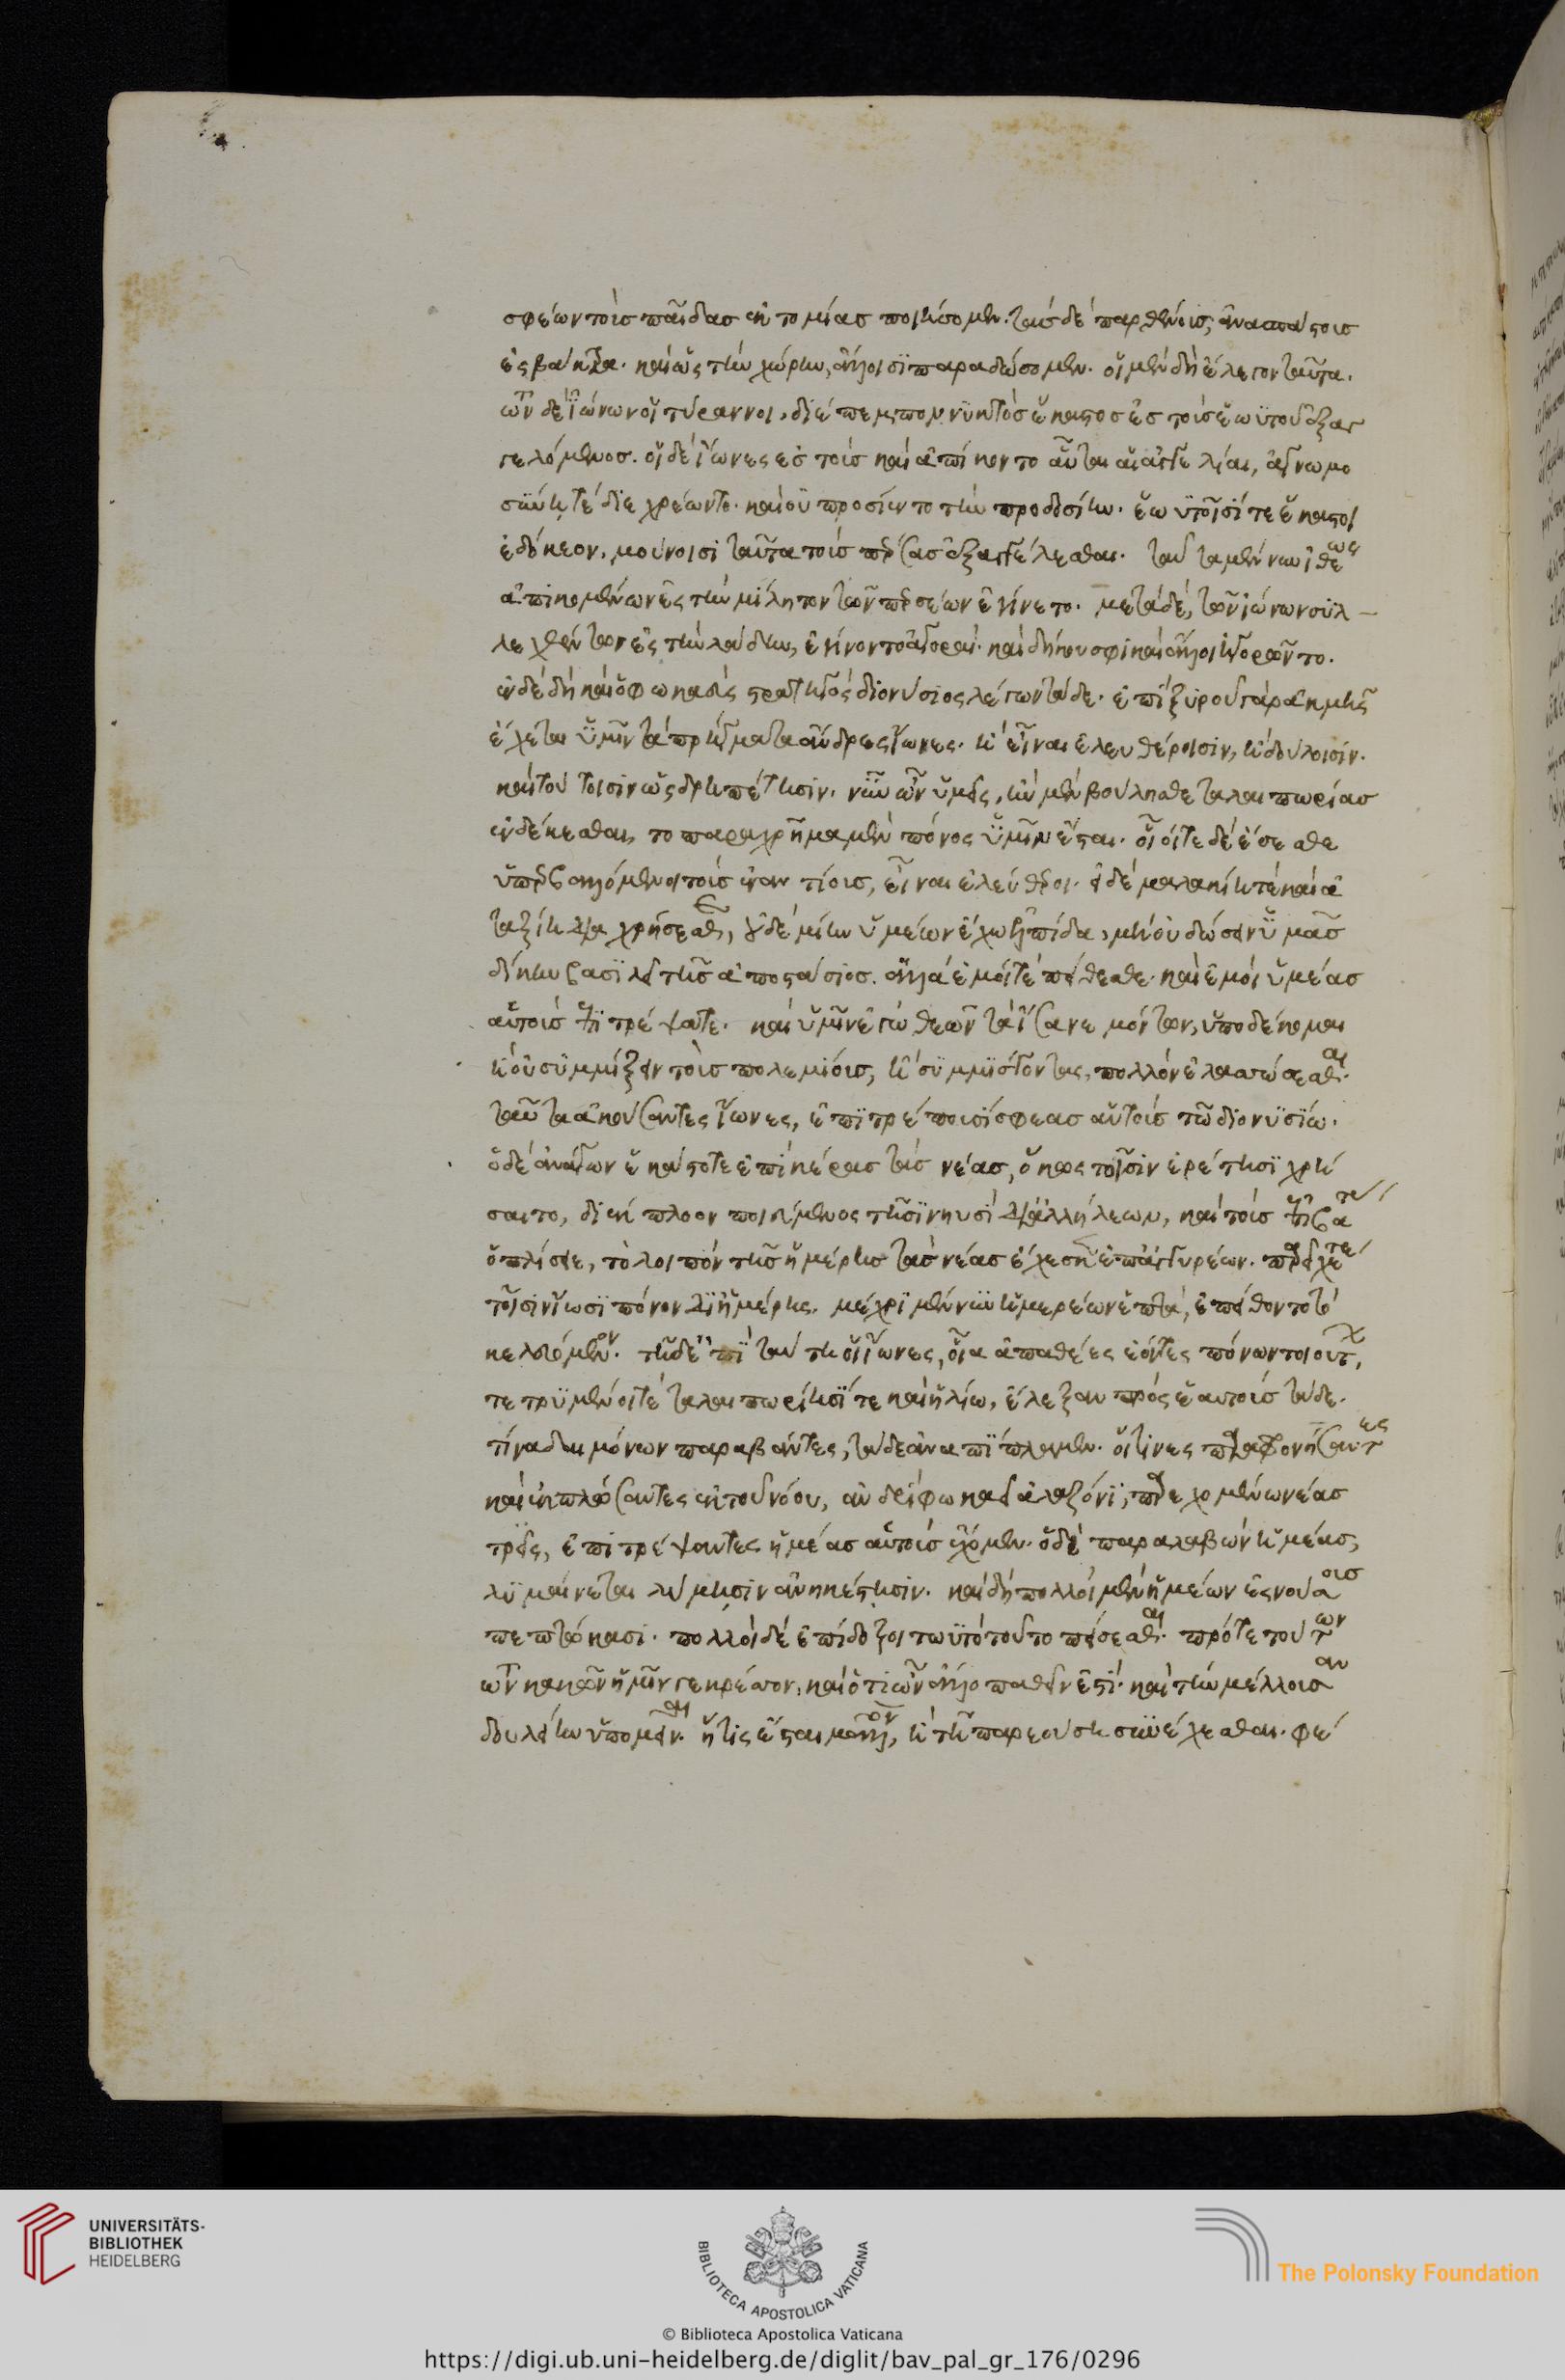 σφέων τοὺσ παῖδασ ἐκτομίασ ποιήσομεν. τὰσ δὲ παρθένους, ἀνασπάστουσ
ἐς βάκτρα. καὶ ὥς τὴν χώρην, ἄλλοισϊ παραδώσομεν. οἵ μὲν δὴ ἔλεγον ταῦτα.
τῶν δὲ ϊώνων οἵ τύραννοι, διέπεμπον νϋκτὸσ ἕκαστοσ ἐσ τοὺσ ἑωϋτοῦ ἐξαγ
γελόμενοσ. οἵ δὲ ἴωνες ἐσ τοὺσ καὶ ἀπίκοντο αὗται αἵ ἀγγελίαι, ἀγνωμο
σϋνηι τὲ διεχρέωντο. καὶ οὐ προσίεντο τὴν προδοσίην. ἑωϋτοῖσί τε ἕκαστοι
ἐδόκεον, μούνοισι ταῦτα τοὺσ πέρσασ ἐξαγγέλεσθαι. ταῦτα μέν νυν ἰθέως
ἀπικομένων ἐς τὴν μίλητον τῶν περσέων ἐγίνετο. μετὰ δὲ, τῶν ϊώνων σϋλ
λεχθέντων ἐς τὴν λάδην, ἐγίνοντο ἀγοραί. καὶ δή κού σφι καὶ ἄλλοι ἠγορῶντο.
ἐν δὲ δὴ καὶ ὁ φωκαεὺς στρατηγὸς διονύσιος λέγων τάδε. ἐπὶ ξυροῦ γὰρ ἀκμῆς
ἔχεται ὑμῖν τὰ πρήγματα ἄνδρες ἴωνες. ἢ εἶναι ἐλευθέροισιν, ἢ δούλοισιν.
καὶ τούτοισιν ὡς δρηπέτηισιν. νῦν ὦν ὑμεῖς, ἢν μὲν βούλησθε ταλαιπωρίασ
ἐνδέκεσθαι, το παραχρῆμα μὲν πόνος ὑμῖν ἔσται. οἷοί τε δὲ ἔσεσθε
ὑπερβαλλόμενοι τοὺσ ἐναντίουσ, εἶναι ἐλεύθεροι. εἰ δὲ μαλακίηι τὲ καὶ ἀ
ταξίηι διαχρήσεσθε, οὐδεμίην ὑμέων ἔχω ἐλπίδα, μὴ οὐ δώσειν ὑμᾶσ
δίκην βασιλεῖ τῆσ ἀποστάσιοσ. ἀλλὰ ἐμοί τὲ πείθεσθε. καὶ ἐμοὶ ὑμέασ
αὐτοὺσ ἐπιτρέψατε. καὶ ὑμῖν ἐγὼ θεῶν τὰ ἴσα νεμόντων, ὑποδέκομαι
ἢ οὐ συμμίξειν τοὺσ πολεμίουσ, ἢ συμμϊσγοντας, πολλὸν ἐλασσώσεσθαι.
ταῦτα ἀκούσαντες ἴωνες, ἐπιτρέπουσϊ σφέασ αὐτοὺσ τῶ διονϋσίω.
ὁ δὲ ἀνάγων ἑκάστοτε ἐπὶ κέρασ τὰσ νέασ, ὅκως τοῖσιν ἐρέτηισϊ χρή
σαιτο, διέκπλοον ποιεύμενος τῆισϊ νηυσὶ δι' ἀλλήλεων, καὶ τοὺσ ἐπιβάτασ
ὁπλίσειε, τὸ λοιπὸν τῆσ ἡμέρησ τὰσ νέασ ἔχεσκε ἐπ' ἀγκυρέων. παρεῖχέ τε
τοῖσιν ἴωσϊ πόνον δι' ἡμέρης. μέχρι μέν νϋν ἡμερέων ἑπτά, ἐπείθοντο τό
κελευόμενον. τῆι δὲ ἐπϊ ταύτηι οἵ ἴωνες, οἷα ἀπαθέες ἐόντες πόνων τοιούτων,
τετρϋμένοι τὲ ταλαιπωρίηισϊ τε καὶ ἡλίω, ἔλεξαν πρὸς ἑαυτοὺσ τάδε.
τίνα δαιμόνων παραβάντες, τάδε ἀναπίπλαμεν. οἵτινες παραφρονήσαντες
καὶ ἐκπλώσαντες ἐκ τοῦ νόου, ἀνδρὶ φωκαεῖ ἀλαζόνϊ, παρεχομένω νέασ
τρεῖς, ἐπιτρέψαντες ἡμέασ αὐτοὺσ ἔχομεν. ὁ δὲ παραλαβὼν ἡμέασ,
λϋμαίνεται λύμηισιν ἀνηκέστηισιν. καὶ δὴ πολλοὶ μὲν ἡμέων ἐς νούσουσ
πεπτώκασι. πολλοὶ δὲ ἐπίδοξοι τωϋτὸ τοῦτο πείσεσθαι. πρό τε τούτων
τῶν κακῶν ἡμῖν γε κρέσσον, καὶ ὅ τι ὦν ἄλλο παθεῖν ἐστὶ. καὶ τὴν μέλλουσαν
δουλείην ὑπομεῖναι. ἥτις ἔσται μᾶλλον, ἢ τῆι παρεούσηι σϋνέχεσθαι. φέ
UNIVERSITÄTS-
BIBLIOTHEK
HEIDELBERG
BIBLIOTECA APOSTOLICA VATICANA
The Polonsky Foundation
© Biblioteca Apostolica Vaticana
https://digi.ub.uni-heidelberg.de/diglit/bav_pal_gr_176/0296